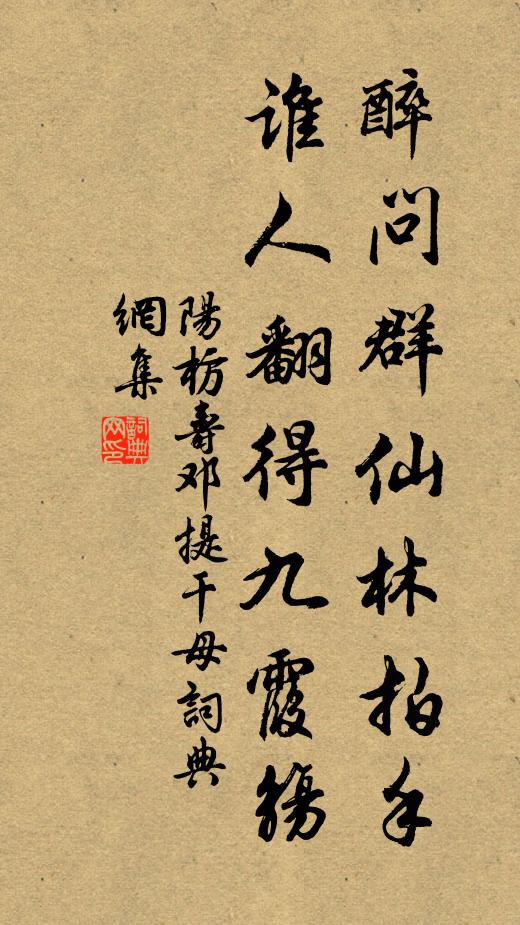 醉問群仙林拍手
谁人翻得九霞觴
陽枋壽邓提干母詞典
網集
詞典
网印